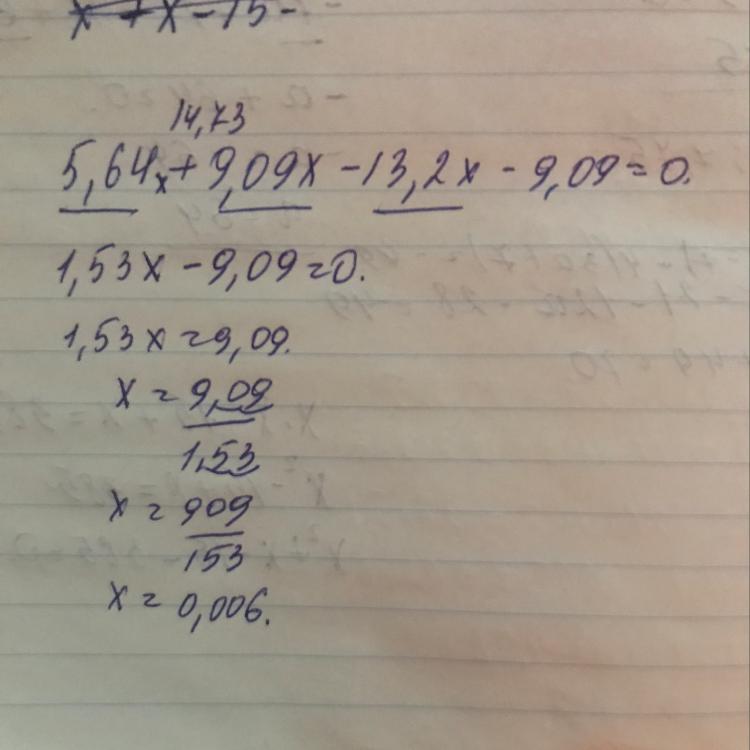 x + x - 15 -
14,73
5,64x + 9,09x - 13,2x - 9,09 = 0.
1,53x - 9,09 = 0.
1,53x = 9,09.
x = 9,09
1,53
x = 909
153
x = 0,006.